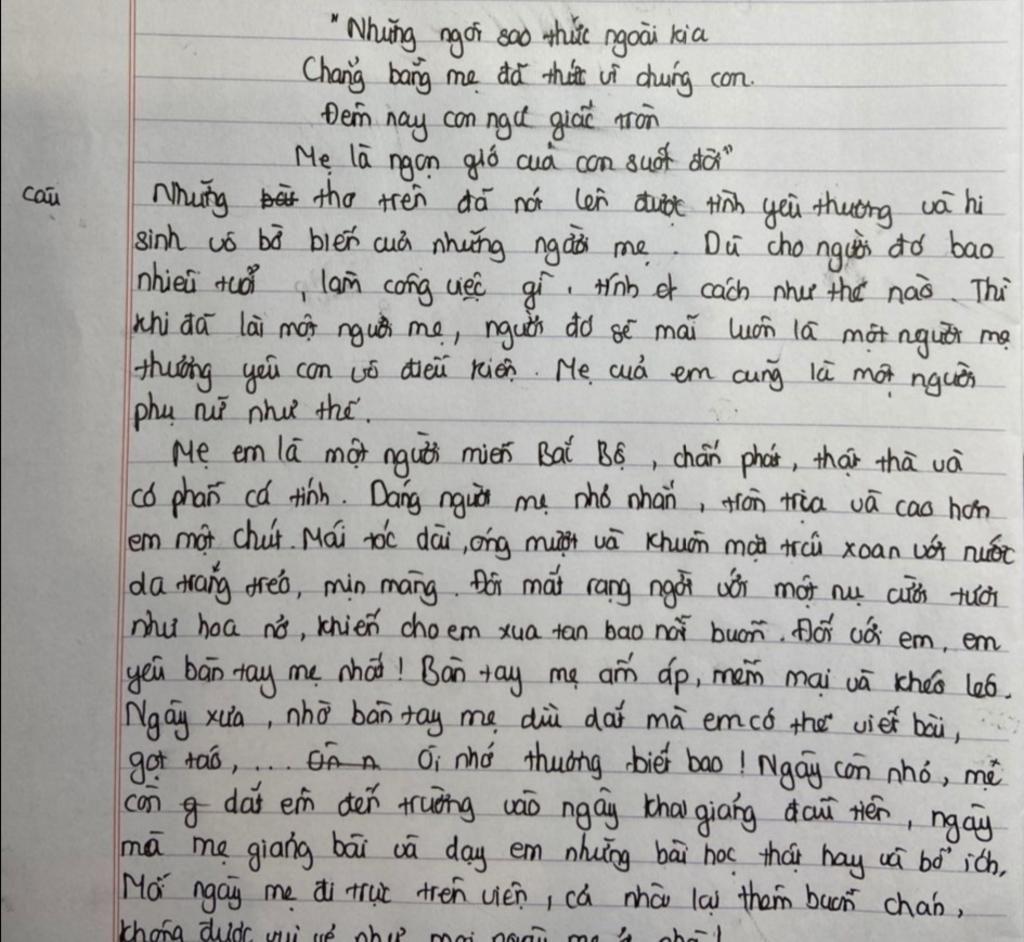 "Những ngôi sao thức ngoài kia
Chẳng bằng mẹ đã thức vì chúng con.
Đêm nay con ngủ giấc tròn
Mẹ là ngọn gió của con suốt đời"
câu
Những thơ trên đã nói lên được tình yêu thương và hi
sinh vô bờ bến của những người mẹ. Dù cho người đó bao
nhiêu tuổi, làm công việc gì, tính cách như thế nào. Thì
khi đã là một người mẹ, người đó sẽ mãi luôn là một người mẹ
thương yêu con vô điều kiện. Mẹ của em cũng là một người
phụ nữ như thế.
Mẹ em là một người miền Bắc Bộ, chân phát, thật thà và
có phần cá tính. Dáng người mẹ nhỏ nhắn, tròn trịa và cao hơn
em một chút. Mái tóc dài, óng mượt và khuôn mặt trái xoan với nước
da trắng trẻo, mịn màng. Đôi mắt rạng ngời với một nụ cười tươi
như hoa nở, khiến cho em xua tan bao nỗi buồn. Đối với em, em
yêu bàn tay mẹ nhất! Bàn tay mẹ ấm áp, mềm mại và khéo léo.
Ngày xưa, nhờ bàn tay mẹ dìu dắt mà em có thể viết bài,
gọt táo, ... Ôi nhớ thương biết bao! Ngày còn nhỏ, mẹ
còn dắt em đến trường vào ngày khai giảng đầu tiên, ngày
mà mẹ giảng bài và dạy em những bài học thật hay và bổ ích.
Mỗi ngày mẹ đi trực trên viện, cả nhà lại thêm buồn chán,
không được vui vẻ như mọi ngày mẹ ở nhà!